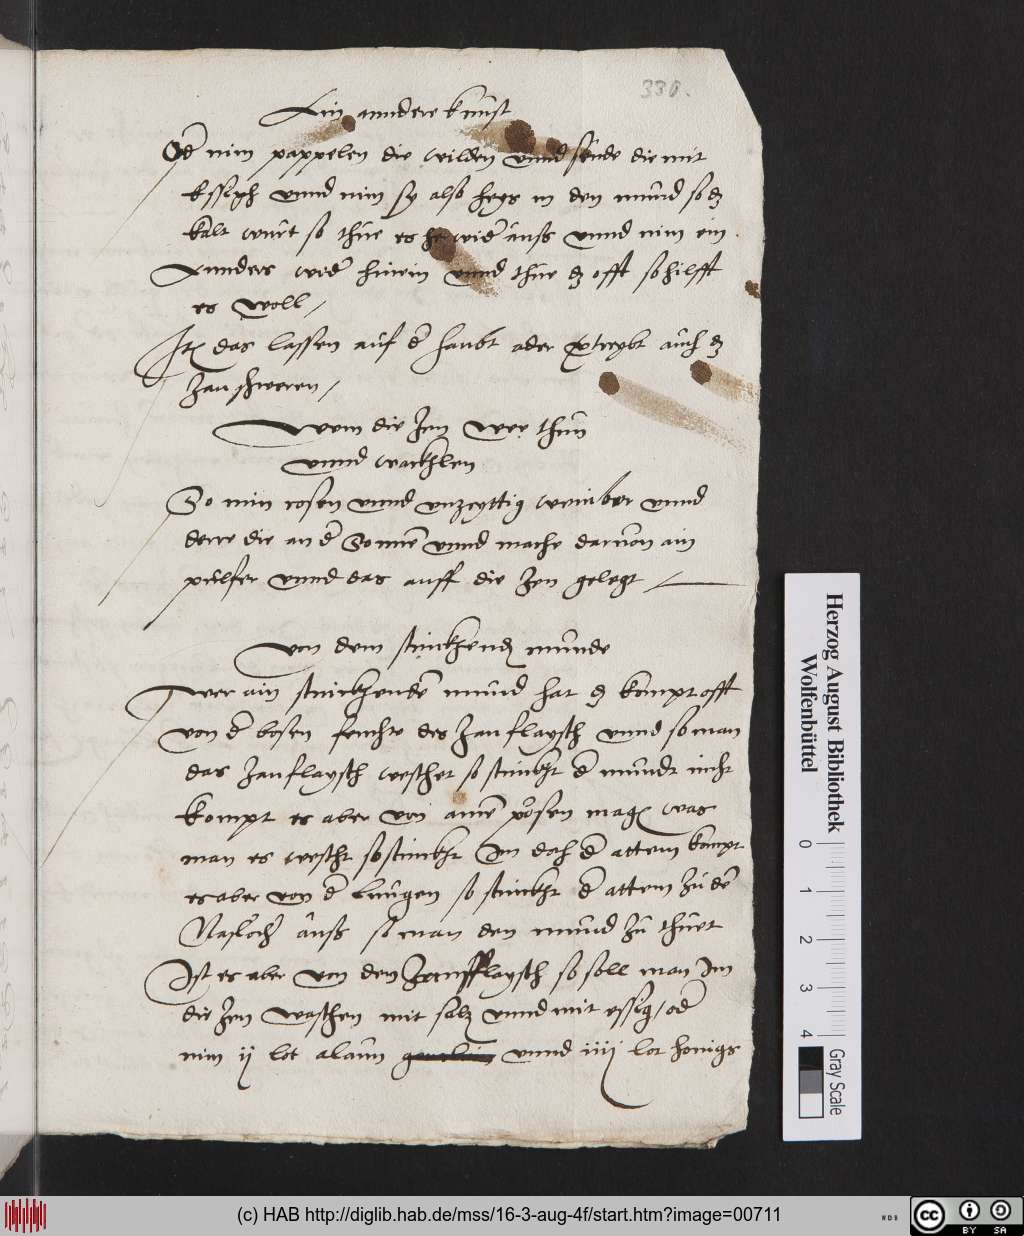 336.
Ein anndere kunst
Od nim pappelen die wilden vnnd seude die mit
Essich vnnd nim sy also heys in den mund so dz
kalt wirt so thue es her wid auss vnnd nim ein
Annders wid hinein vnnd thue dz offt so hilfft
es woll /
It das lassen auf d haubt ader vtreybt auch dz
Zan schweren /
Wem die Zen wee thun
vnnd wackhlen
So nim rosen vnnd vnzeyttig weinber vnnd
derre die an d Sonne vnnd mache daruon ain
pulfer vnnd das auff die Zen gelegt /
Von dem stinckhend munde
Wer ain stinckhende mund hat dz kompt offt
von d bosen feuchte des Zanflaysch vnnd so man
das Zanflaysch wescht so stinckht d mundt nicht
kompt es aber von aine posen mag was
man es wescht so stinckht Im doch d attem kompt
es aber von d lungen so stinckht d attem zu de
Naslocher auss so man den mund zu thuet
Ist es aber von den Zannfflaysch so soll man Im
die Zen waschen mit salz vnnd mit essig / od
nim ij lot alaun vnnd iiij lot honigs
Herzog August Bibliothek
Wolfenbüttel
0 1 2 3 4
Gray Scale
(c) HAB http://diglib.hab.de/mss/16-3-aug-4f/start.htm?image=00711
cc BY SA